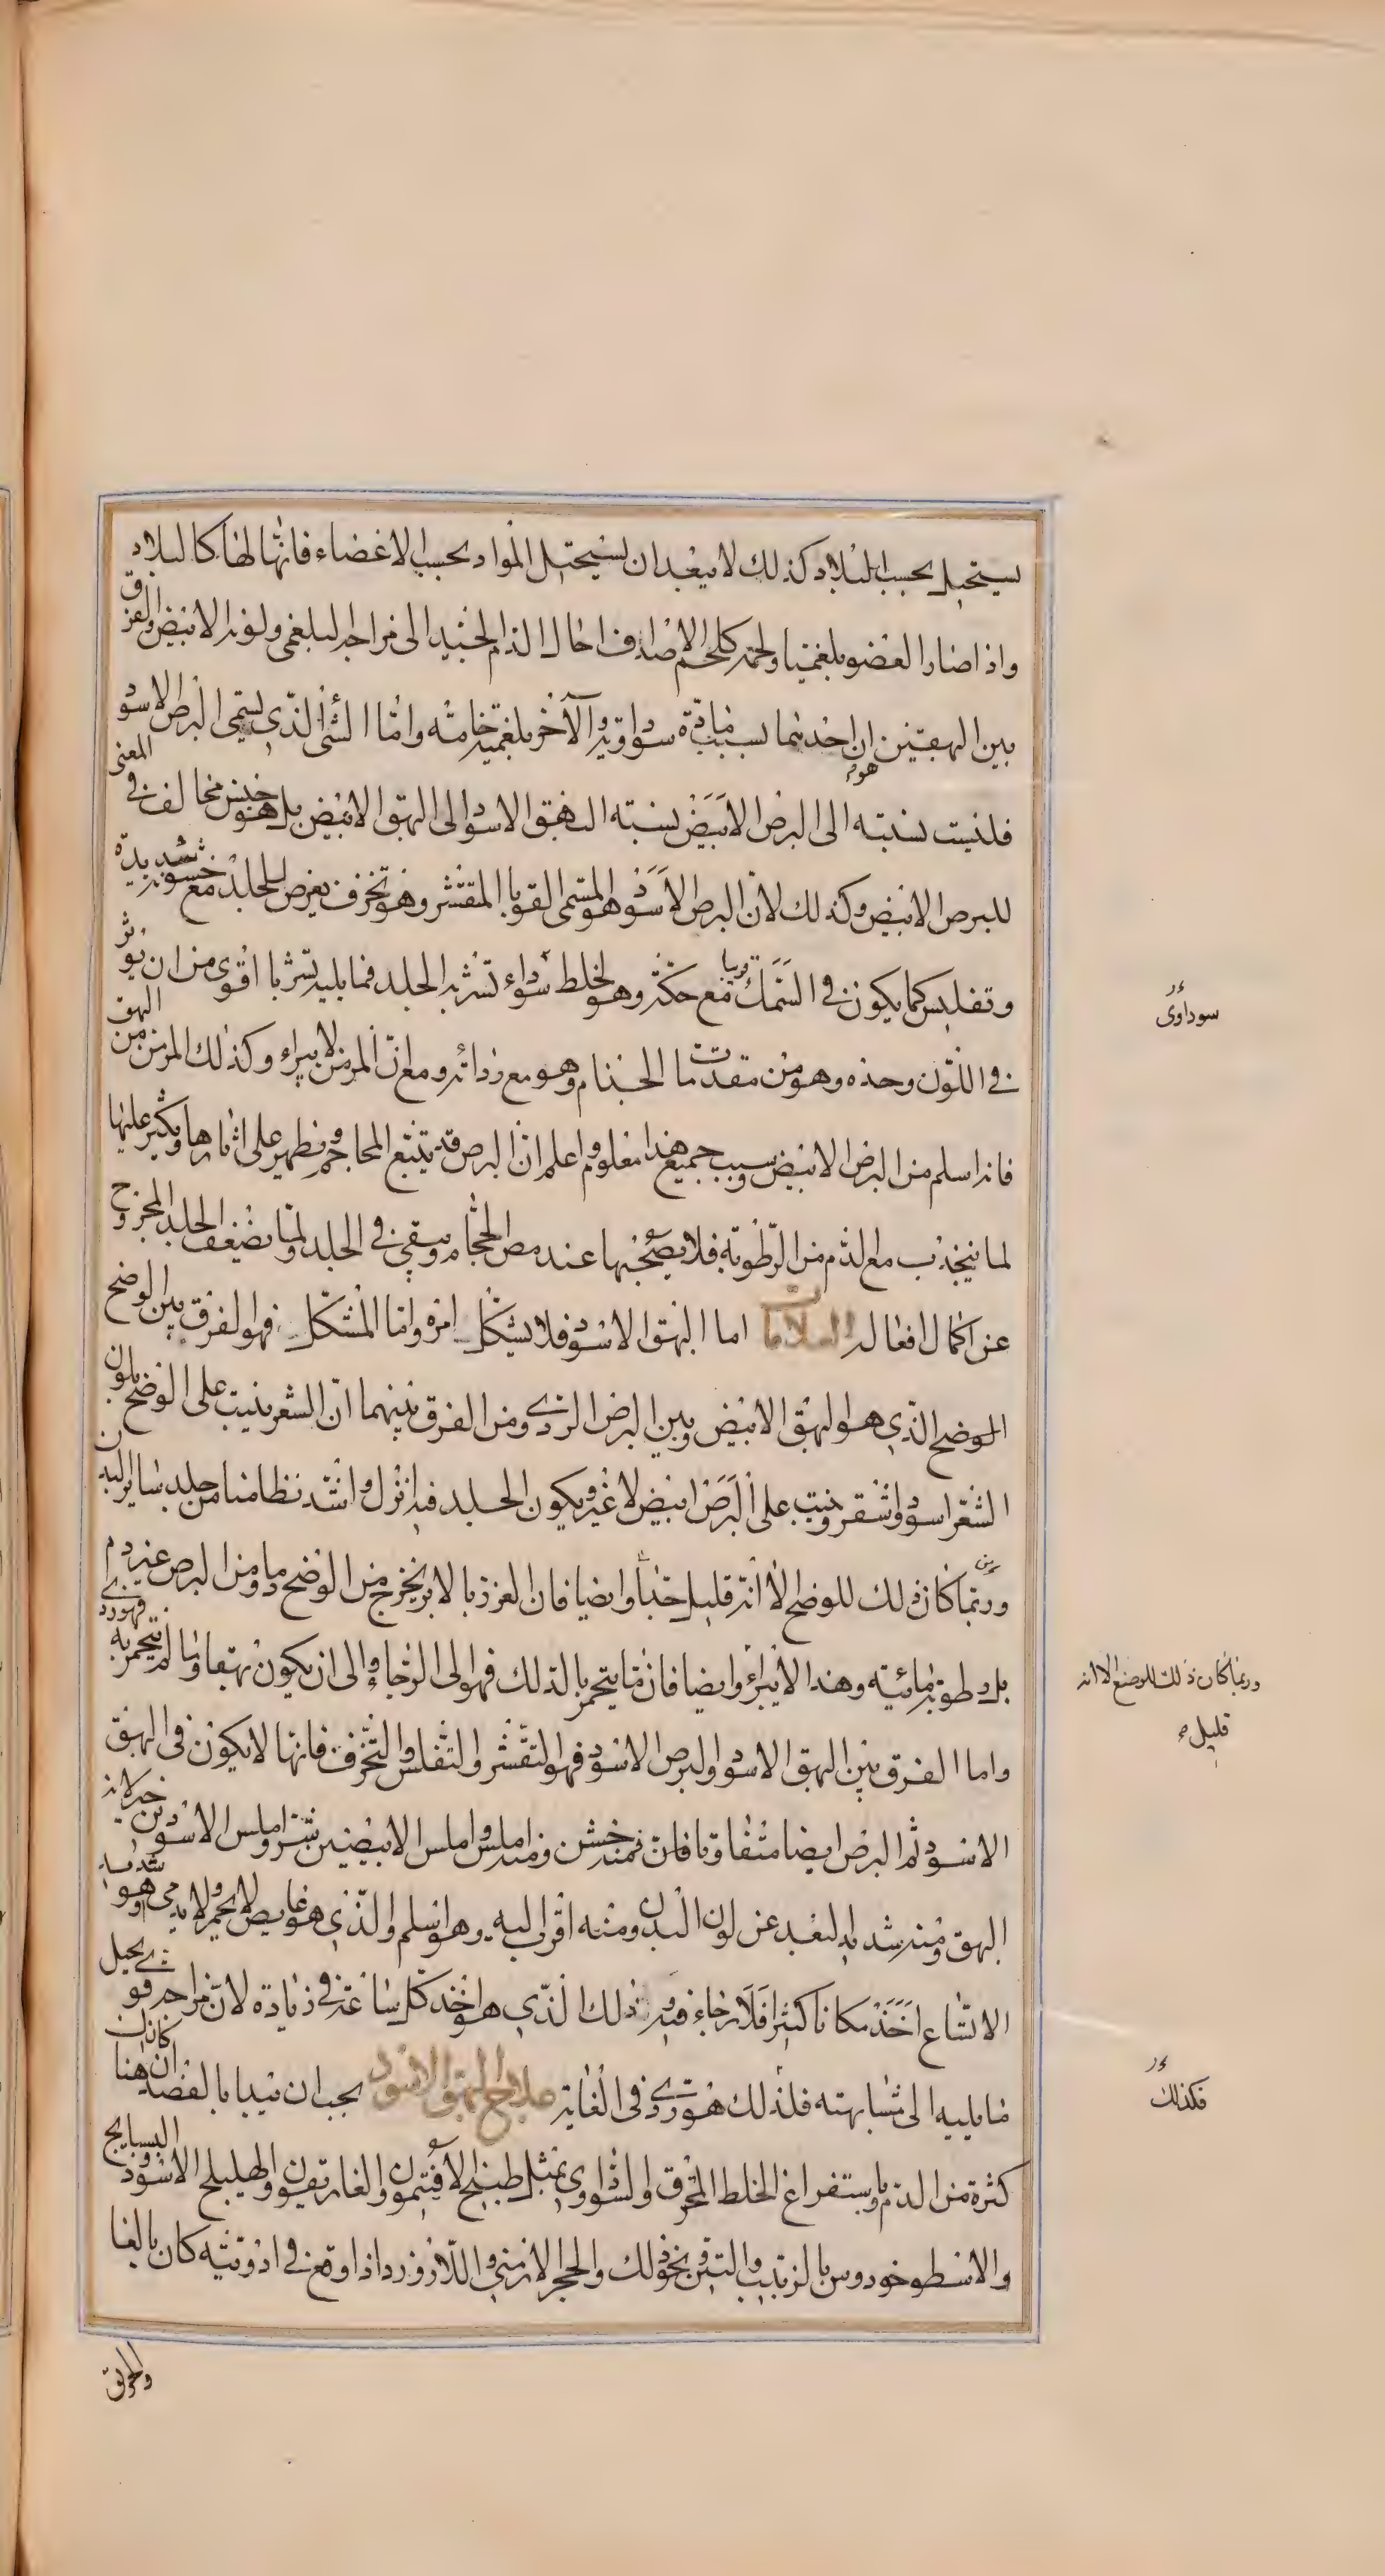 يستحيل بحسب البلاد كذلك لا يبعد ان يستحيل المواد بحسب الاعضاء فانها لها كالبلاد
واذا صار العضو بلغميا ولحمه كلحم الاصداف احال الدم الجيد الى مزاجه البلغمى ولونه الابيض والفرق
بين البهقين ان احدهما بسبب مادة سوداوية والآخر بلغمية خامته واما الشئ الذي يسمى البرص الاسود
فليست نسبته الى البرص الابيض نسبته البهق الاسود الى البهق الابيض بل هو جنس مخالف في المعنى
للبرص الابيض وكذلك لان البرص الاسود هو المسمى القوبا المقتشر وهو تخزف يعرض للجلد مع خشونة شديدة
وتفليس كما يكون في السمك مع حكة وهو لخلط سوداء تشربه الجلد فما يليه تشربا اقوى من ان يوثر
في اللون وحده وهو من مقدمات الجذام وهو مع رداءته ومع ان المزمن لا يبراء وكذلك المزمن من البهق
فانه اسلم من البرص الابيض وسبب جميع هذا معلوم واعلم ان البرص قد يتبع المحاجم فظهر على اثارها ويكثر عليها
لما ينجذب مع الدم من الرطوبة فلا يصحبها عند مص الحجام وبقى في الجلد ولما يضعف الجلد المجروح
عن اكمال افعاله العلامات اما البهق الاسود فلا يشكل امره واما المشكل فهو الفرق بين الوضح
الوضح الذي هو البهق الابيض وبين البرص الردى ومن الفرق بينهما ان الشعر ينبت على الوضح بلون
الشعر اسود واشقر وينبت على البرص ابيض لا غير ويكون الجلد فيه انزل واشد تطامنا من جلد سائر البدن
وربما كان ذلك للوضح الا انه قليل جدا وايضا فان الغرز بالابر يخرج من الوضح دما ومن البرص غير دم
بل رطوبة مائية وهذا لا يبرأ وايضا فان ما يتحمر بالدلك فهو الى الرجاء والى ان يكون بهقا وما لم يتحمر به فهو ردي
واما الفرق بين البهق الاسود والبرص الاسود فهو التقشر والتفلس والتخزف فانها لا يكون في البهق
الاسود ثم البرص ايضا متفاوتا فان فمنه خشن ومنه املس واملس الابيضين شر واملس الاسودين خير لانه
البهق ومنه شديد البعد عن لون البدن ومنه اقرب اليه وهو اسلم والذي هو غايص لا يحمر ولا يدمى وهو شديد
الاتساع اخذ مكانا كثيرا فلا رجاء فيه ذلك الذي هو اخذ كل ساعة في زيادة لان مزاجه قوى يحيل
ما يليه الى مشابهته فلذلك هو ردى في الغاية علاج البهق الاسود يجب ان يبدا بالفصد ان كان هنا
كثرة من الدم ويستفراغ الخلط المحترق والسوداوى بمثل طبيخ الافتيمون والغاريقون والهليلج الاسود والبسبايج
والاسطوخودوس بالزبيب والتين ونحو ذلك والحجر الارمنى واللازورد اذا وقع في ادويته كان بالغا
والخربق
سوداوى
وربما كان ذلك للوضح الا انه
قليل
فكذلك